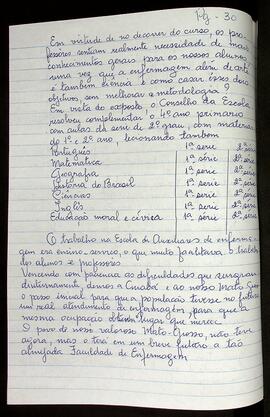 Pg - 30
Em virtude de no decorrer do curso, os pro-
fessores sentiam realmente necessidade de mais
conhecimentos gerais para os nossos alunos
uma vez que a enfermagem além de arte
é também ciência e como casar esses dois
objetivos, sem melhorar a metodologia?
Em vista do exposto, o Conselho da Escola
resolveu complementar o 4º ano primário
com aulas da série de 2º grau, com matérias
do 1º e 2º ano, lecionando também
Português 1ª série 2ª série
Matemática 1ª série 2ª série
Geografia 1ª série 2ª série
História do Brasil 1ª série 2ª série
Ciências 1ª série 2ª série
Inglês 1ª série 2ª série
Educação moral e cívica 1ª série 2ª série
O trabalho na Escola de Auxiliares de enferma-
gem era ensino, serviço, o que muito facilitava o trabalho
dos alunos e professores.
Vencendo com paciência as dificuldades que surgiam
diuturnamente, demos a Cuiabá e ao nosso Mato Grosso
o passo inicial para que a população tivesse no futuro
um real atendimento de enfermagem, para que a
mesma ocupação obtivesse lugar que merece.
O povo de nosso valoroso Mato-Grosso, não teve
agora, mas o terá em um breve futuro a tão
almejada Faculdade de Enfermagem